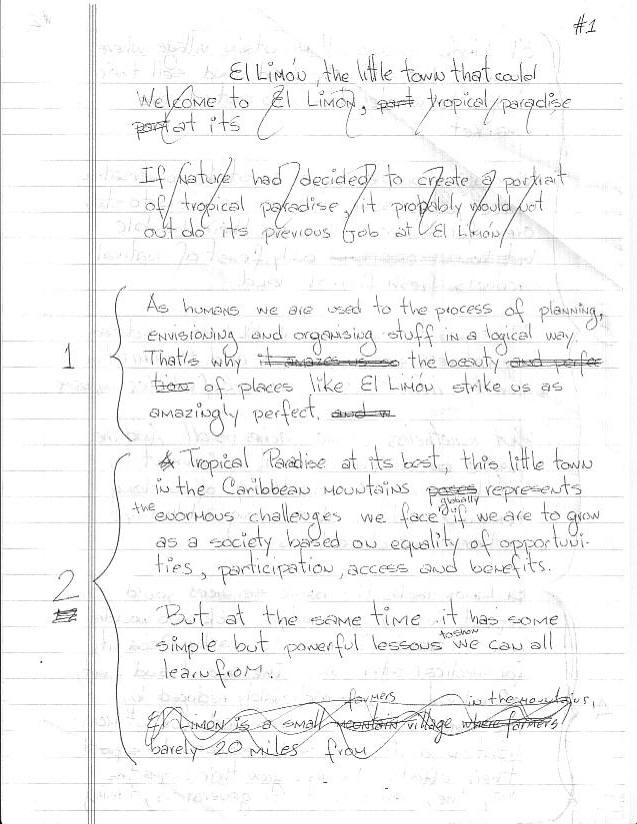 #1
El Limón, the little town that could
Welcome to El Limón, part tropical paradise
part at its
If Nature had decided to create a portrait
of tropical paradise, it probably would not
out do its previous job at El Limón
1
As humans we are used to the process of planning,
envisioning and organising stuff in a logical way.
That's why it amazes us so the beauty and perfec
tion of places like El Limón strike us as
amazingly perfect. and w
A Tropical Paradise at its best, this little town
in the Caribbean Mountains poses represents
globally
the enormous challenges we face if we are to grow
as a society based on equality of opportuni-
ties, participation, access and benefits.
2
But at the same time it has some
to show
simple but powerful lessons we can all
learn from.
farmers in the mountains,
El Limón is a small mountain village where farmers
barely 20 miles from